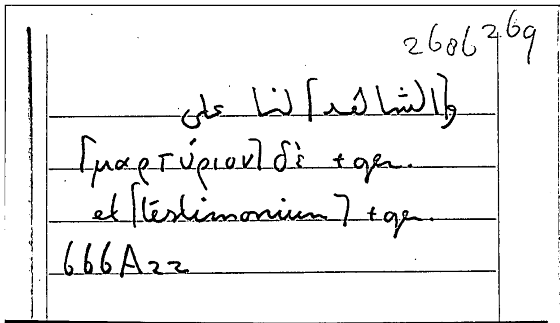 2686269
و[الشاهد] لنا على
[μαρτύριον] δὲ + gen.
et [testimonium] + gen.
666A22